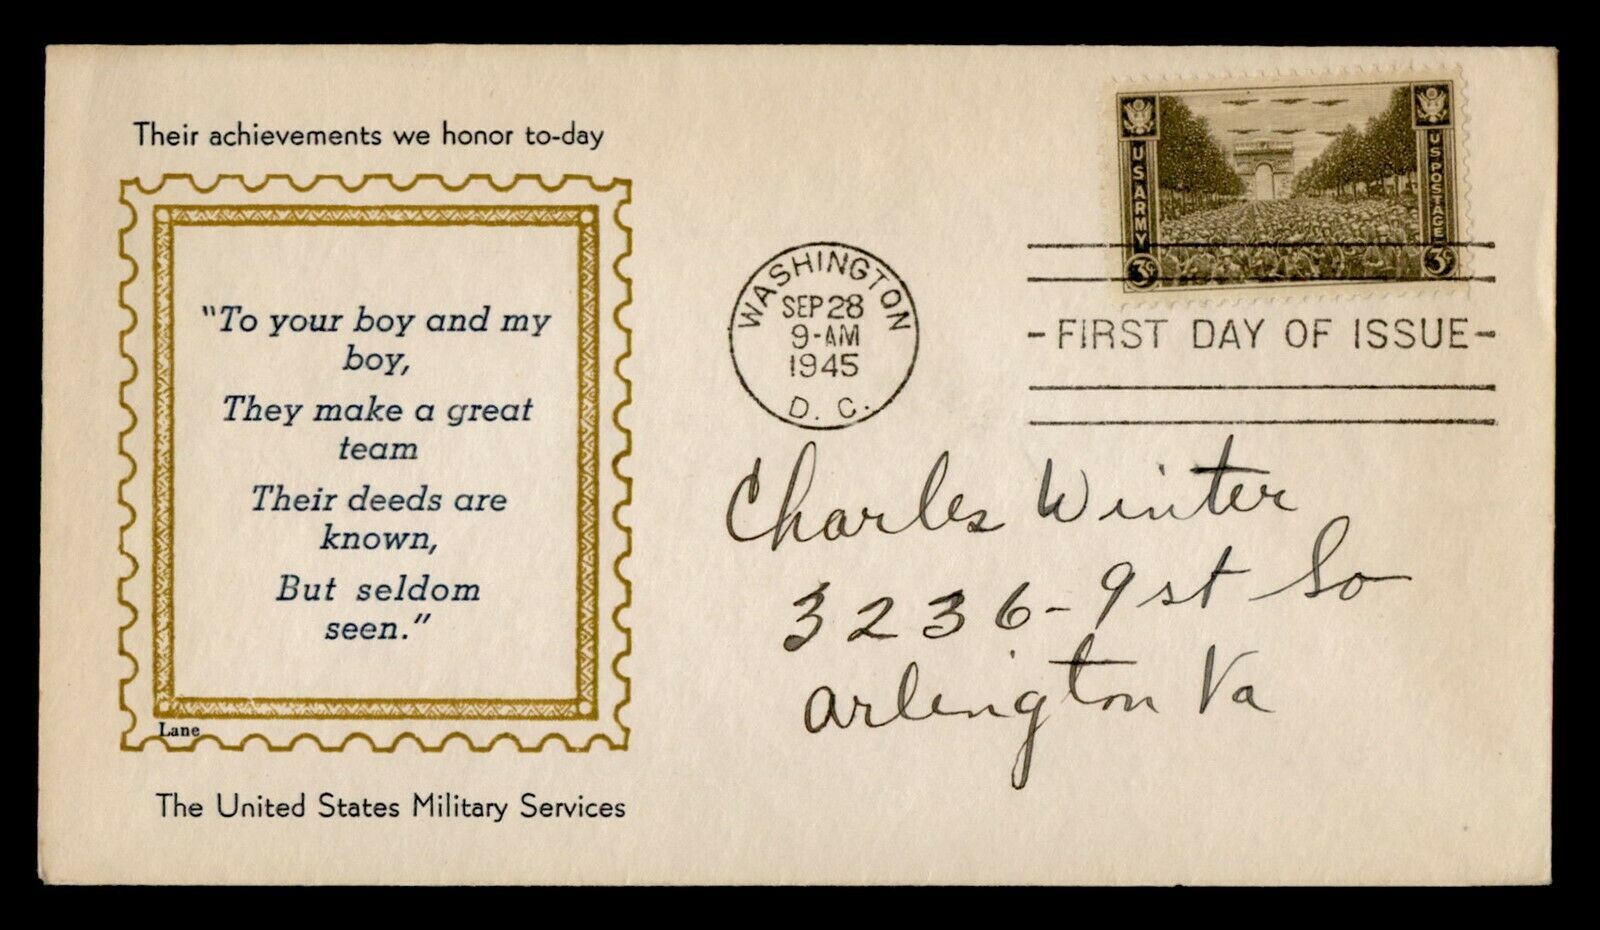 Their achievements we honor to-day
"To your boy and my
boy,
They make a great
team
Their deeds are
known,
But seldom
seen."
Lane
The United States Military Services
WASHINGTON
SEP 28
9-AM
1945
D. C.
U S ARMY
3¢
U S POSTAGE
3¢
- FIRST DAY OF ISSUE -
Charles Winter
3236-9st So
Arlington Va